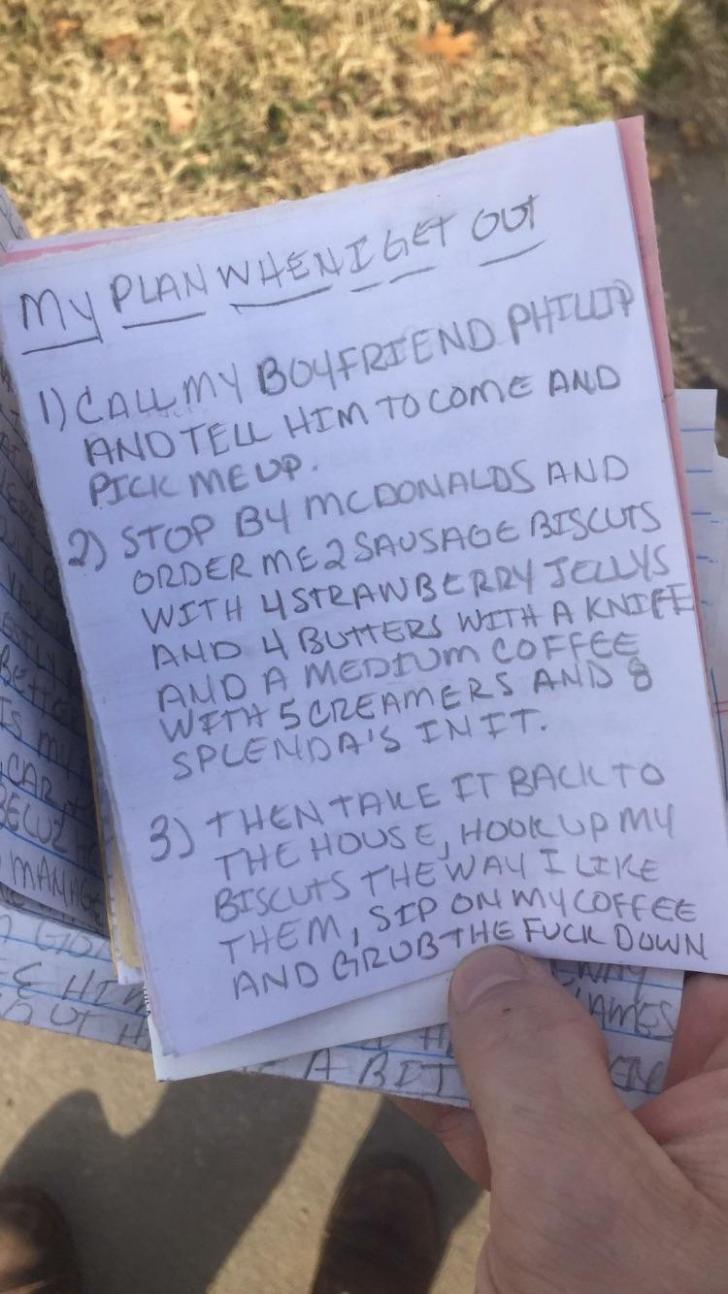 MY PLAN WHEN I GET OUT
1) CALL MY BOYFRIEND PHILLIP
AND TELL HIM TO COME AND
PICK ME UP.
2) STOP BY MCDONALDS AND
ORDER ME 2 SAUSAGE BISCUTS
WITH 4 STRAWBERRY JELLYS
AND 4 BUTTERS WITH A KNIFE
AND A MEDIUM COFFEE
WITH 5 CREAMERS AND 8
SPLENDA'S IN IT.
3) THEN TAKE IT BACK TO
THE HOUSE, HOOK UP MY
BISCUTS THE WAY I LIKE
THEM, SIP ON MY COFFEE
AND GRUB THE FUCK DOWN
IS MY
CAR
MANAGE
A BIT